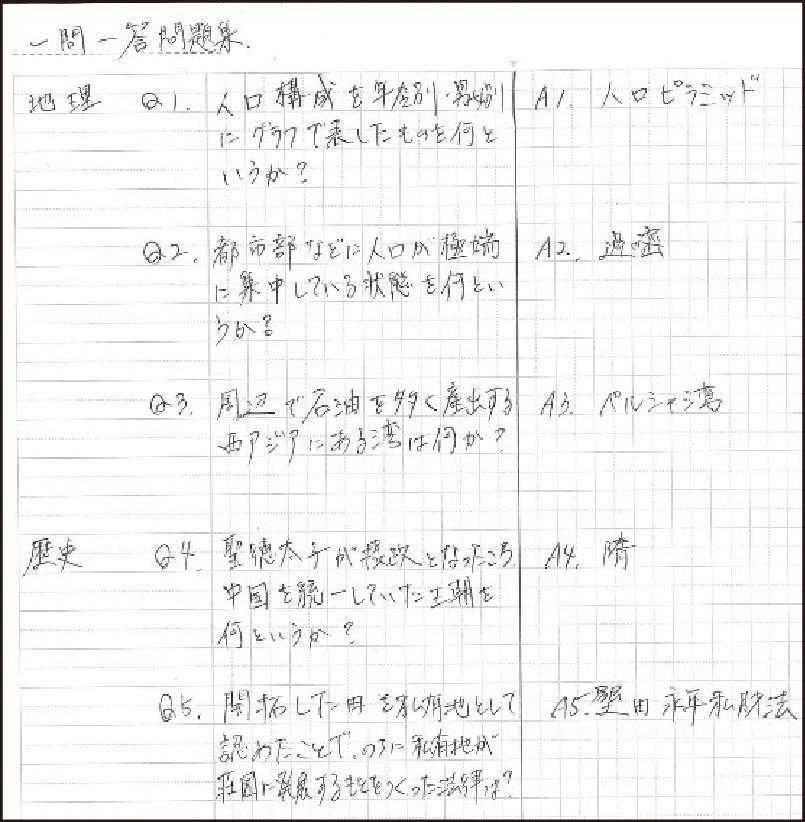 一問一答問題集.
地理 Q1. 人口構成を年令別・男女別 A1. 人口ピラミッド
にグラフで表したものを何と
いうか?
Q2. 都市部などに人口が極端 A2. 過密
に集中している状態を何とい
うか?
Q3. 周辺で石油を多く産出する A3. ペルシャ湾
西アジアにある湾は何か?
歴史 Q4. 聖徳太子が摂政となったころ A4. 隋
中国を統一していた王朝を
何というか?
Q5. 開拓した田を私有地として A5. 墾田永年私財法
認めたことで、のちに私有地が
荘園に発展するもとをつくった法律は?